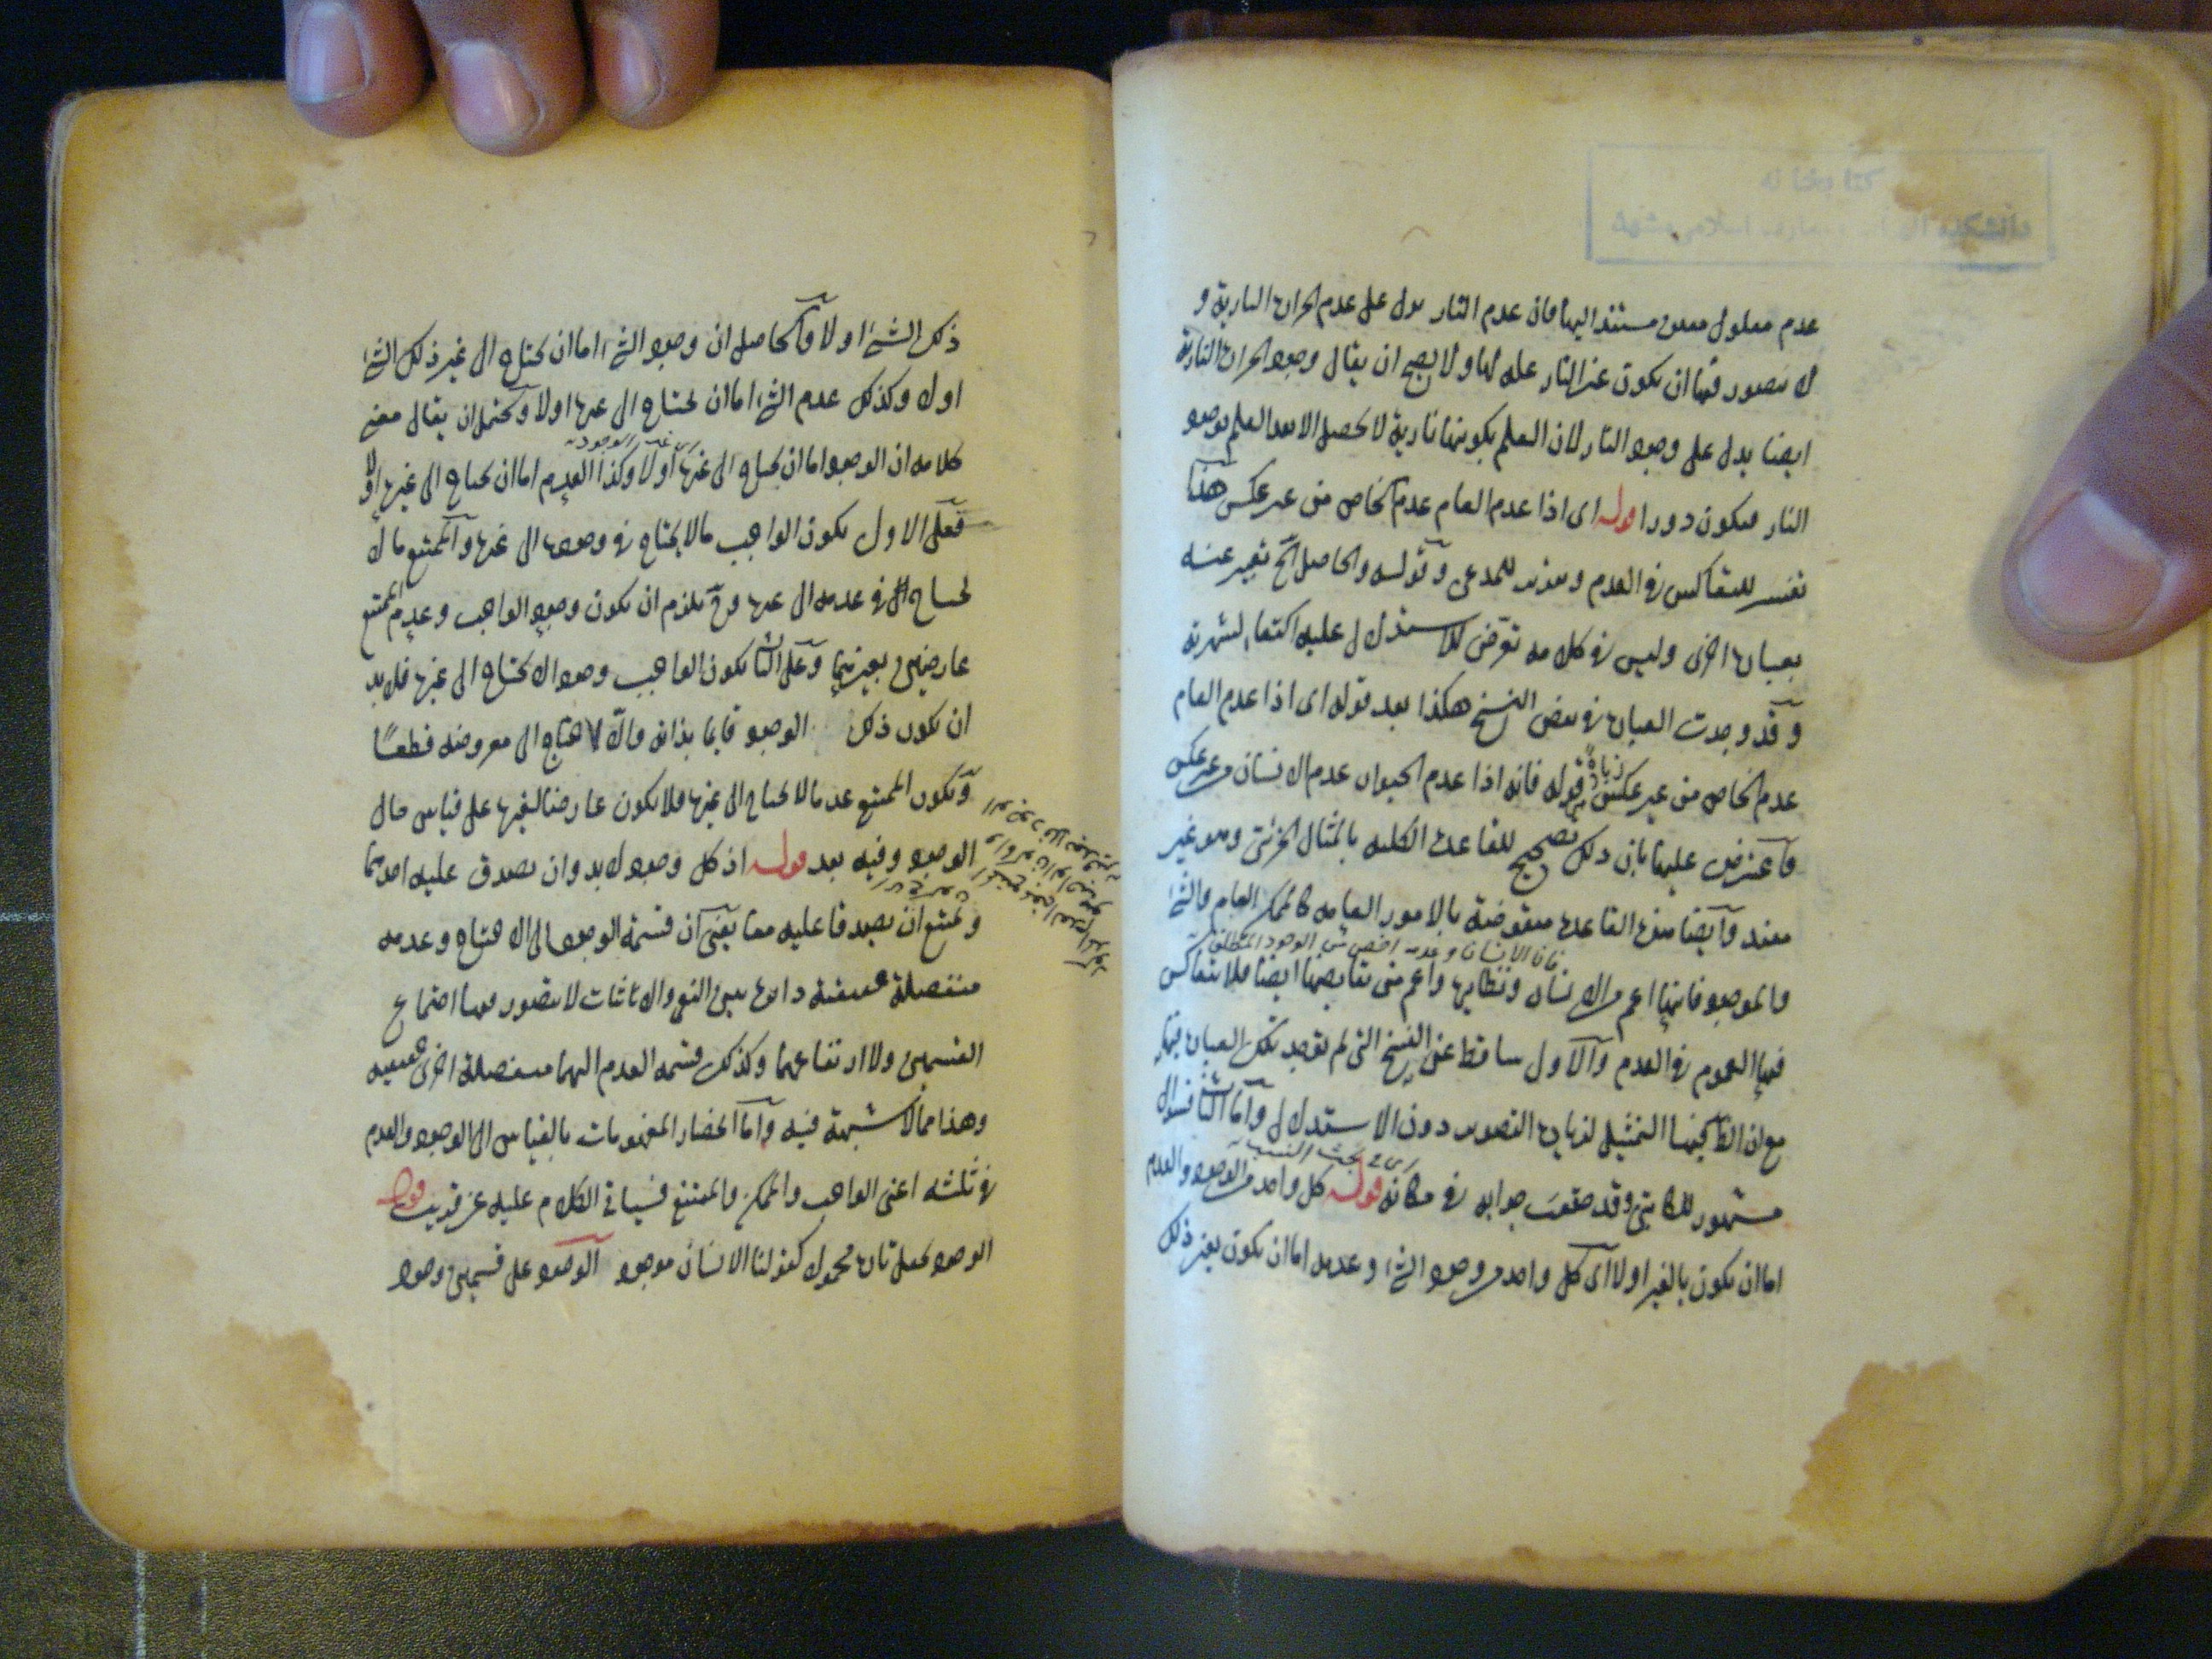 كتابخانه
دانشكده اسلامى مشهد
عدم معلول معين مستند اليها فان عدم النار يدل على عدم الحرارة النارية و
لا يتصور فيها ان يكون غير النار علة لها ولا يصح ان يقال وجود الحرارة النارية
ايضا يدل على وجود النار لان العلم بكونها نارية لا يحصل الا بعد العلم بوجود
النار فيكون دورا قوله اى اذا عدم العام عدم الخاص من غير عكس هذا
تفسير للتعاكس فى العدم للمدعى وقوله والحاصل الخ تعبير عنه
بعبارة اخرى وليس فى كلامه تعرض للاستدلال عليه اكتفاء لشهرته
وقد وجدت العبارة فى بعض النسخ هكذا بعد قوله اى اذا عدم العام
عدم الخاص من غير عكس زيادة قوله فانه اذا عدم الحيوان عدم الانسان من غير عكس
واعترض عليها بان ذلك تصحيح للقاعدة الكلية بالمثال الجزئى وهو غير
مفيد وايضا هذه القاعدة منقوضة بالامور العامة كالممكن العام والشئ
فان الانسان وعدمه اخص من الوجود المطلق
والموجود فانها اعم من الانسان ونظايرها واعم من نقايضها ايضا فلا يتعاكس
فيها العموم فى العدم والاول ساقط عن النسخ التى لم توجد تلك العبارة فيها
مع ان الظ كونها التمثيل لزيادة التصوير دون الاستدلال واما الثانى فسؤال
اى فى بحث النسب
مشهور للكاتبى وقد حقق جوابه فى مكانه قوله كل واحد من الوجود والعدم
اما ان يكون بالغير اولا اى كل واحد من وجود الشئ وعدمه اما ان يكون بغير ذلك
ذلك الشئ اولا والحاصل ان وجود الشئ اما ان يحتاج الى غير ذلك الشئ
اولا وكذلك عدم الشئ اما ان يحتاج الى غيره اولا ويحتمل ان يقال معنى
اى غير الوجود
كلامه ان الوجود اما ان يحتاج الى غيره اولا وكذا العدم اما ان يحتاج الى غيره اولا
فعلى الاول يكون الواجب ما لا يحتاج فى وجوده الى غيره والممتنع ما لا
يحتاج فى عدمه الى غيره وح يلزم ان يكون وجود الواجب وعدم الممتنع
عارضين بغيرهما وعلى الثانى يكون الواجب وجودا لا يحتاج الى غيره فلا بد
ان يكون ذلك الوجود قايما بذاته والا لاحتاج الى معروضه قطعا
ويكون الممتنع عدما لا يحتاج الى غيره فلا يكون عارضا لغيره على قياس حال
الوجود وفيه بعد قوله اذ كل وجود لا بد وان يصدق عليه احدهما
ويمتنع ان يصدقا عليه معا يعنى ان قسمة الوجود الى الاحتياج وعدمه
منفصلة حقيقية دايرة بين النفى والاثبات لا يتصور فيها اجتماع
القسمين ولا ارتفاعهما وكذلك قسمة العدم اليهما منفصلة اخرى حقيقية
وهذا مما لا شبهة فيه واما انحصار المفهومات بالقياس الى الوجود والعدم
فى ثلثة اعنى الواجب والممكن والممتنع فسياتى الكلام عليه عن قريب قوله
الوجود يجعل تارة محمولا كقولنا الانسان موجود الوجود على قسمين وجود